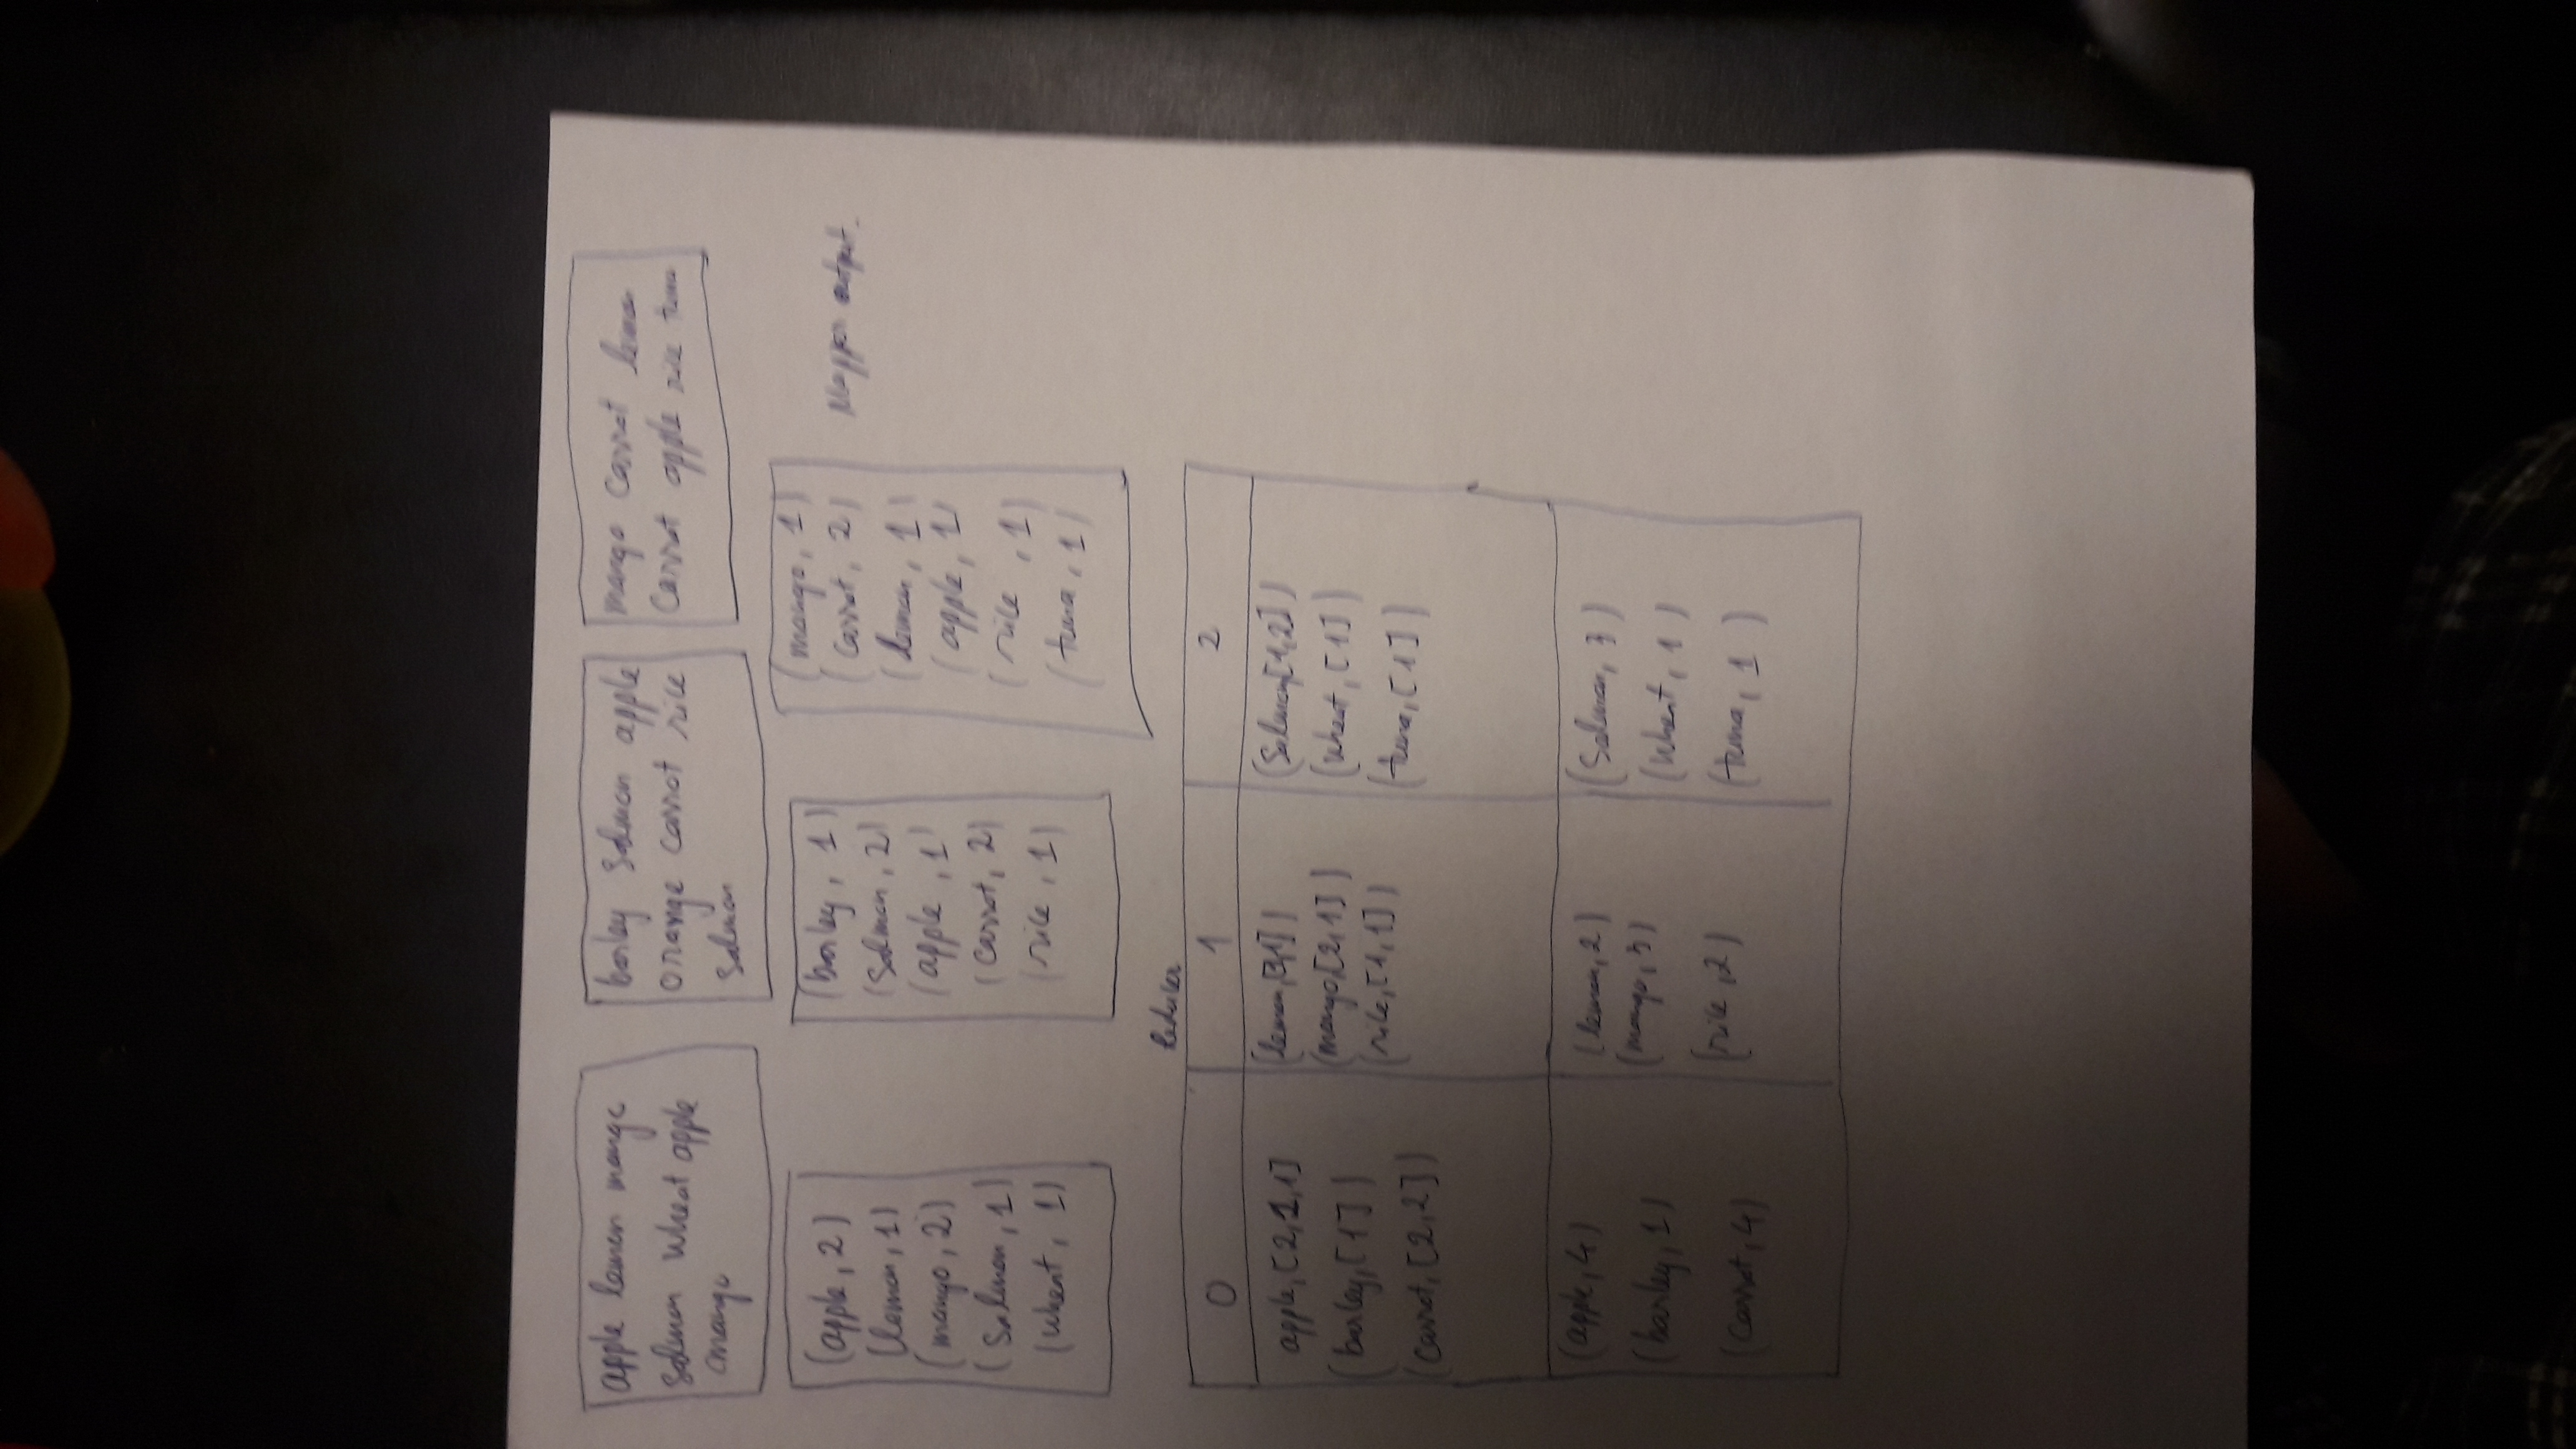 apple lemon mango
salmon wheat apple
mango
barley salmon apple
orange carrot rice
salmon
mango carrot lemon
carrot apple rice tuna
(apple, 2)
(lemon, 1)
(mango, 2)
(Salmon, 1)
(wheat, 1)
(barley, 1)
(Salmon, 2)
(apple, 1)
(carrot, 2)
(rice, 1)
(mango, 1)
(carrot, 2)
(lemon, 1)
(apple, 1)
(rice, 1)
(tuna, 1)
Mapper output.
Reducer
0
1
2
apple, [2,1,1]
(barley, [1])
(carrot, [2,2])
(lemon, [1])
(mango, [2,1])
(rice, [1,1])
(Salmon, [1,2])
(wheat, [1])
(tuna, [1])
(apple, 4)
(barley, 1)
(carrot, 4)
(lemon, 2)
(mango, 3)
(rice, 2)
(Salmon, 3)
(wheat, 1)
(tuna, 1)